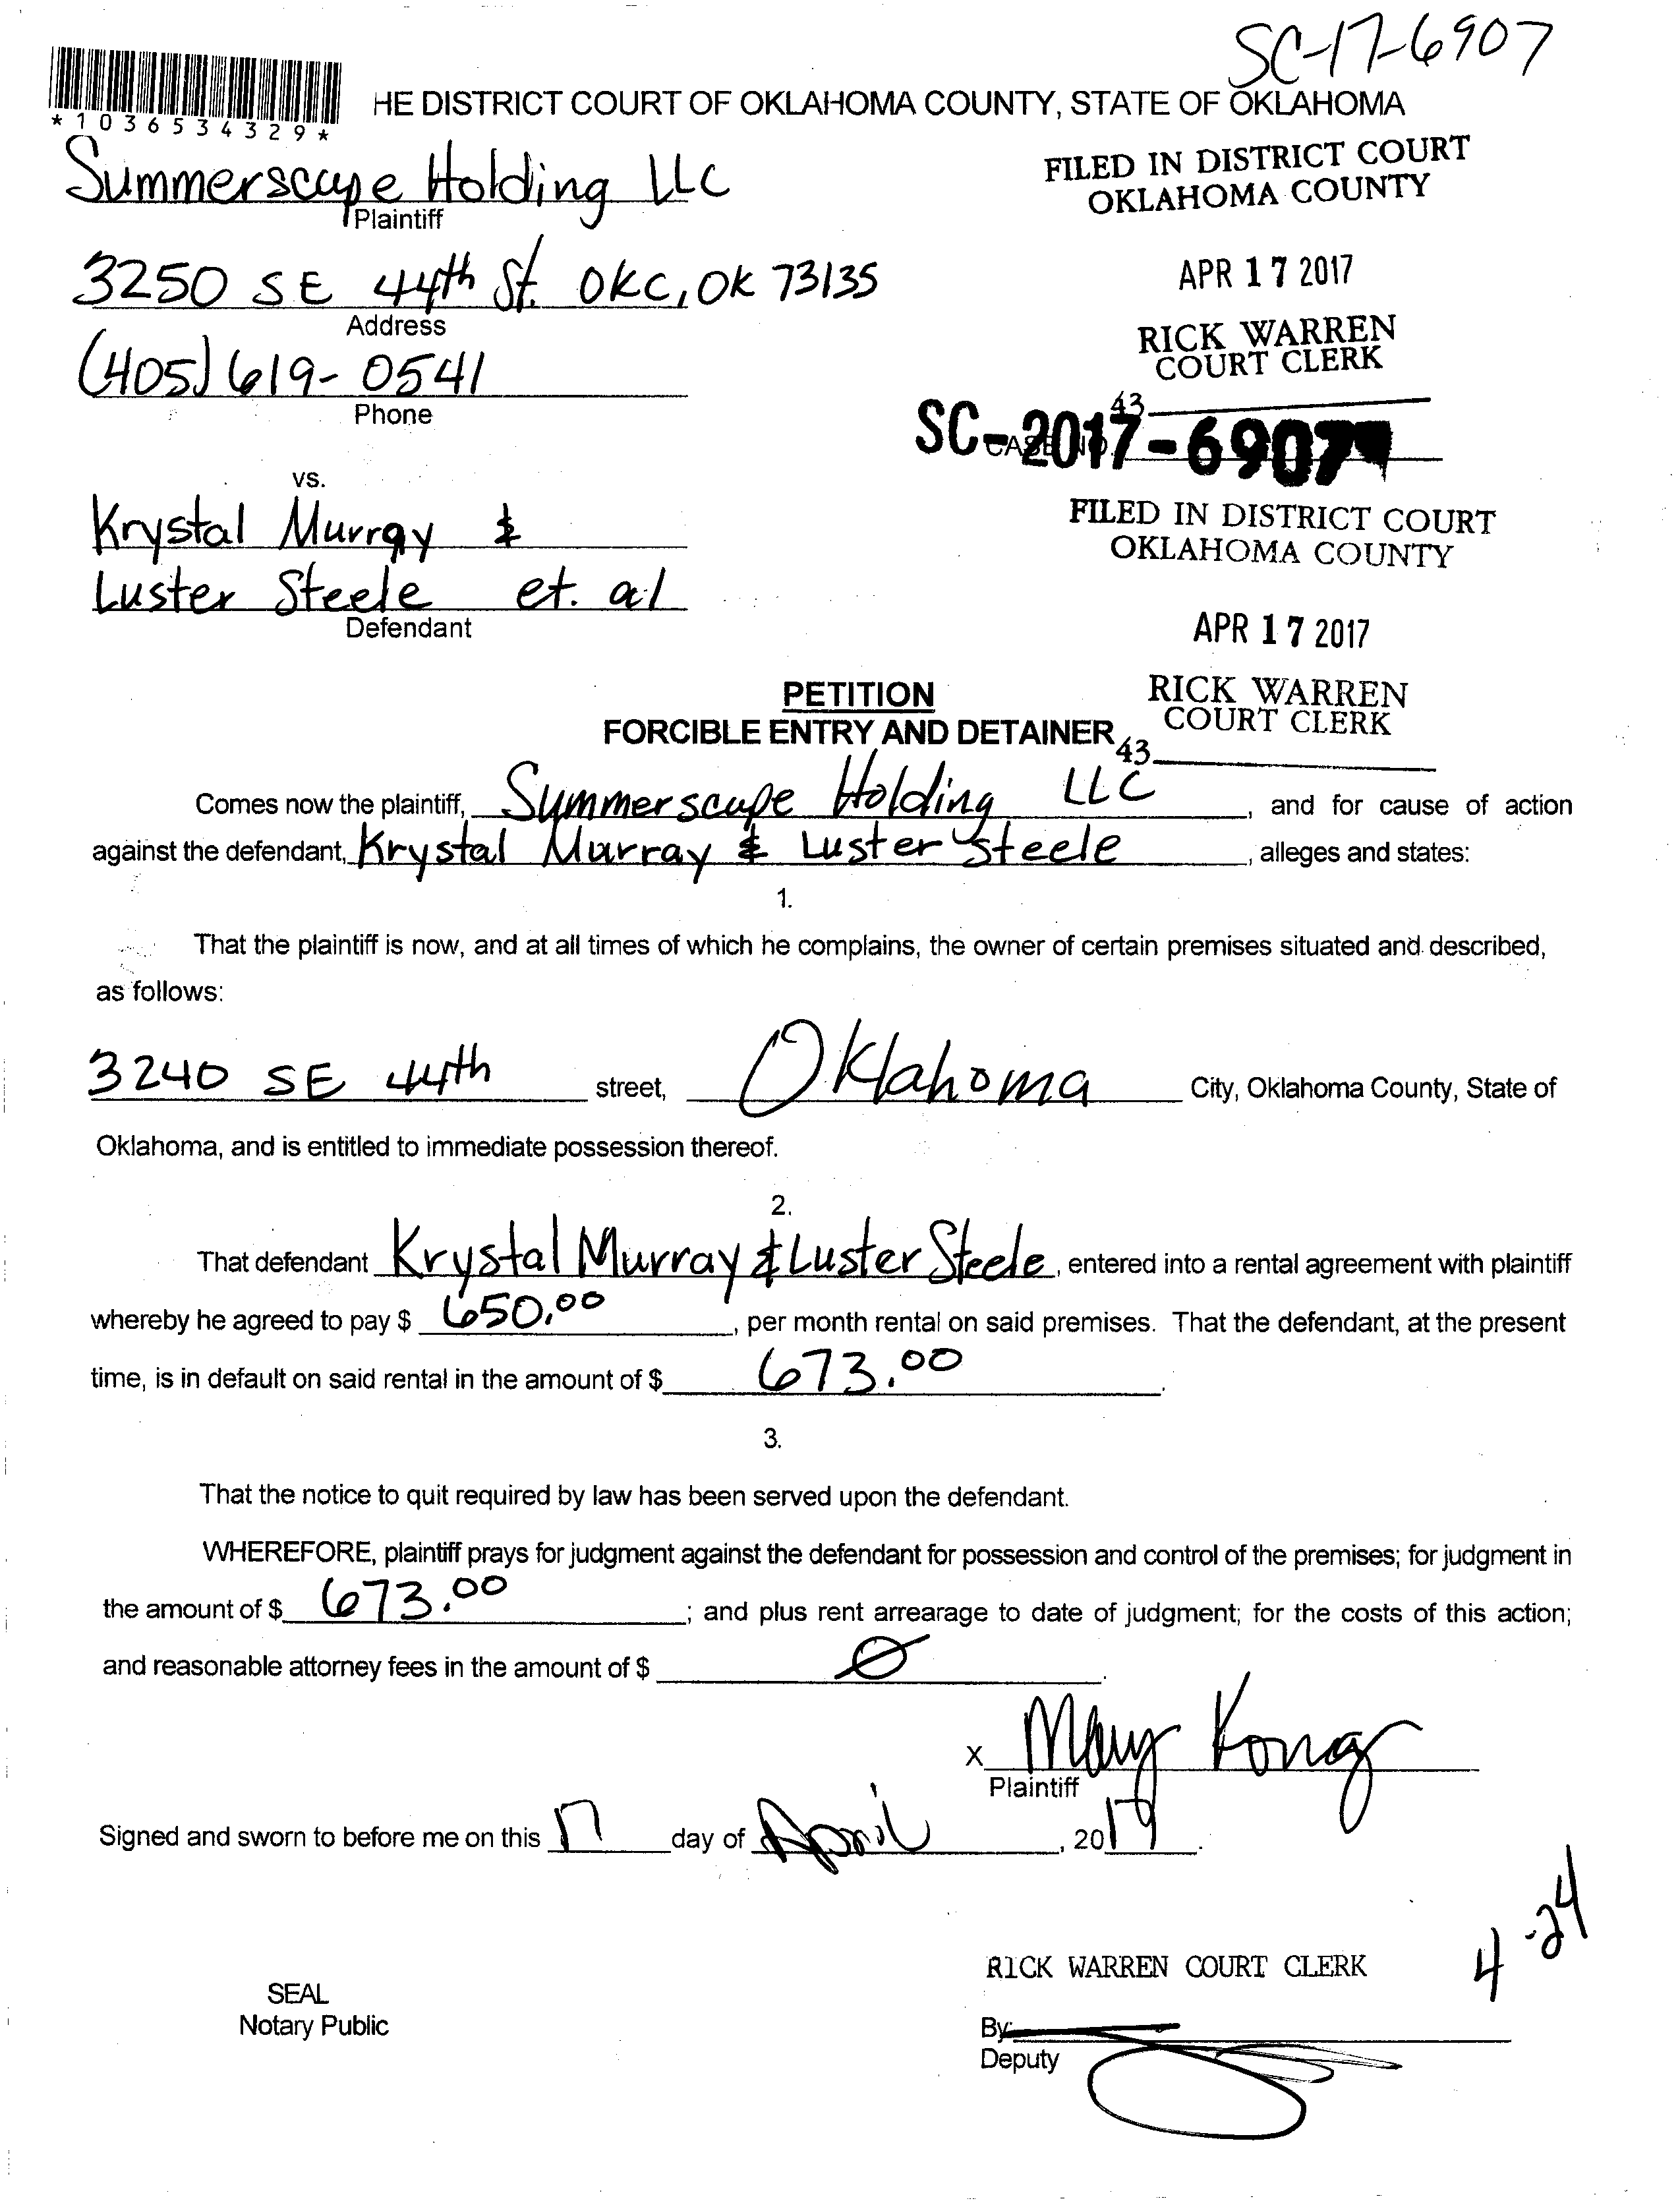 SC-17-6907
*1036534329*
HE DISTRICT COURT OF OKLAHOMA COUNTY, STATE OF OKLAHOMA
Summerscape Holding LLC
Plaintiff
FILED IN DISTRICT COURT
OKLAHOMA COUNTY
3250 SE 44th St. OKC, OK 73135
Address
APR 17 2017
(405) 619-0541
Phone
RICK WARREN
COURT CLERK
43
CASE NO.
SC-2017-6907
vs.
FILED IN DISTRICT COURT
OKLAHOMA COUNTY
Krystal Murray &
Luster Steele et. al
Defendant
APR 17 2017
PETITION
FORCIBLE ENTRY AND DETAINER
RICK WARREN
COURT CLERK
43
Comes now the plaintiff, Summerscape Holding LLC, and for cause of action
against the defendant, Krystal Murray & Luster Steele, alleges and states:
1.
That the plaintiff is now, and at all times of which he complains, the owner of certain premises situated and described,
as follows:
3240 SE 44th street, Oklahoma City, Oklahoma County, State of
Oklahoma, and is entitled to immediate possession thereof.
2.
That defendant Krystal Murray & Luster Steele, entered into a rental agreement with plaintiff
whereby he agreed to pay $ 650.00, per month rental on said premises. That the defendant, at the present
time, is in default on said rental in the amount of $ 673.00.
3.
That the notice to quit required by law has been served upon the defendant.
WHEREFORE, plaintiff prays for judgment against the defendant for possession and control of the premises; for judgment in
the amount of $ 673.00; and plus rent arrearage to date of judgment; for the costs of this action;
and reasonable attorney fees in the amount of $ Ø.
x Mary Kong
Plaintiff
Signed and sworn to before me on this 17 day of April, 2017.
4-24
RICK WARREN COURT CLERK
SEAL
Notary Public
By:
Deputy